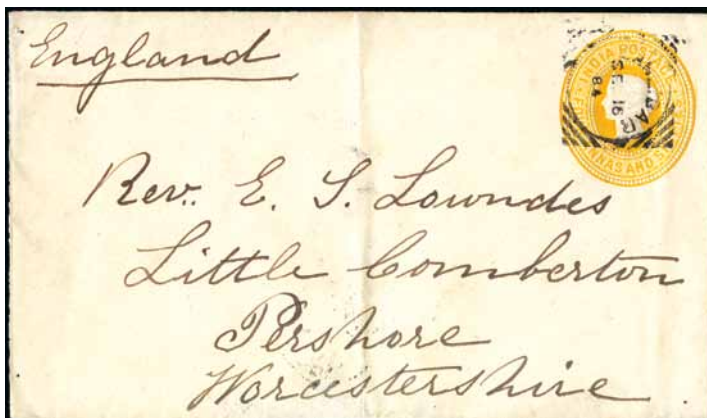 England
INDIA POSTAGE
ANNAS AND
ZANZIBAR
16
84
Rev. E. S. Lowndes
Little Comberton
Pershore
Worcestershire